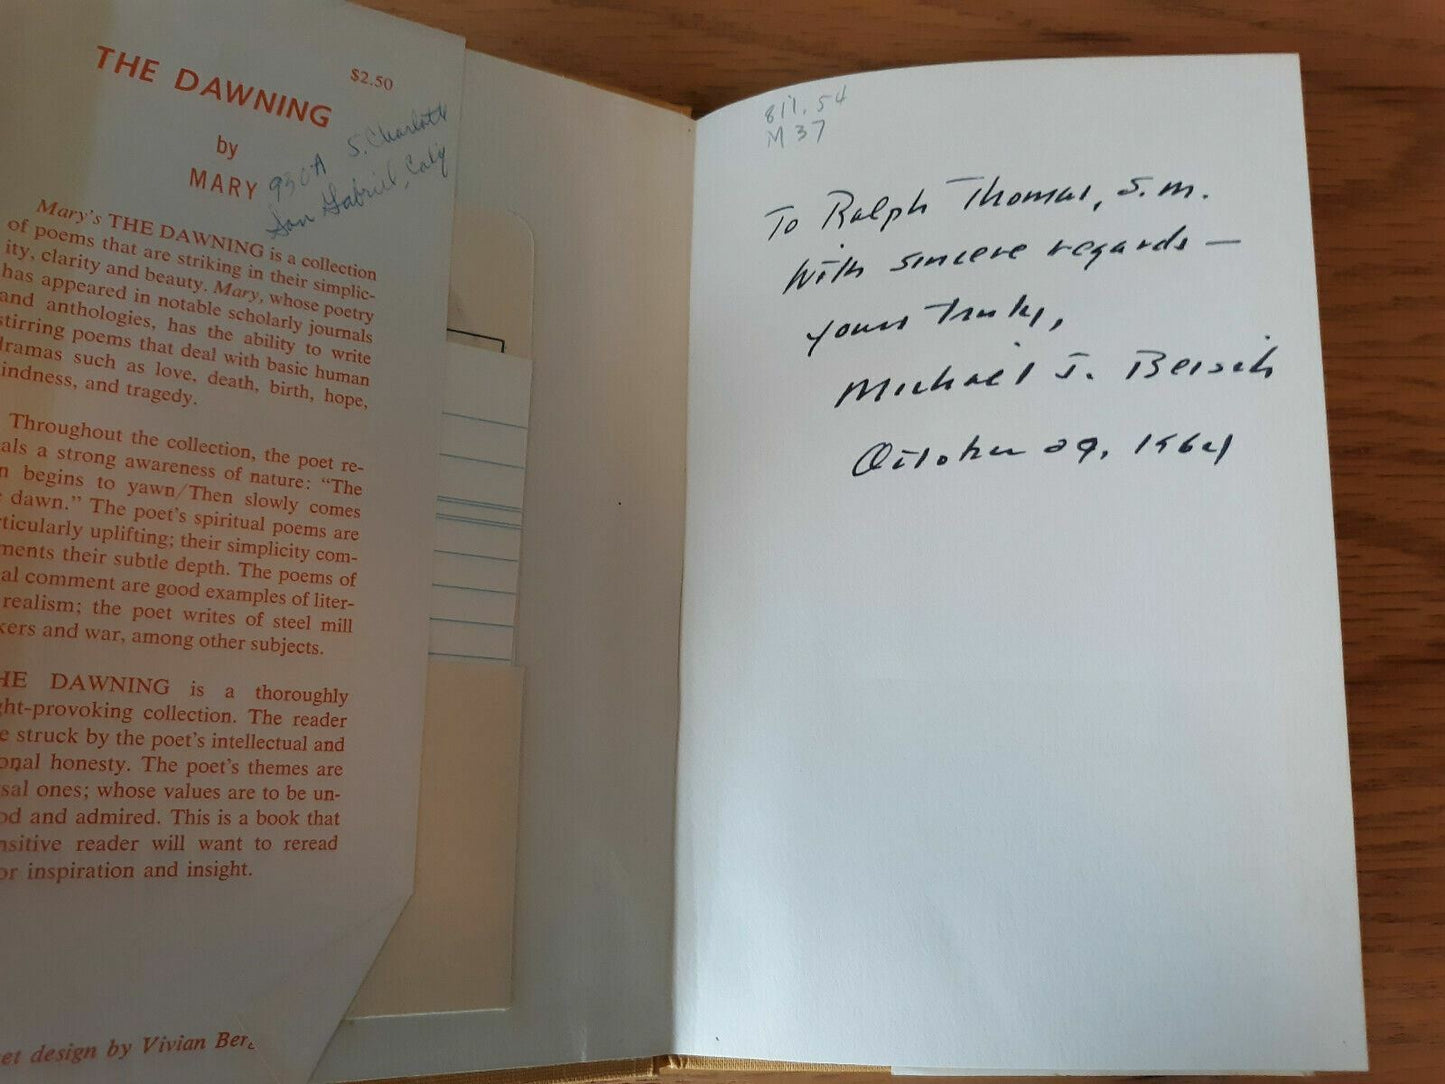 THE DAWNING
$2.50
by
MARY
930A S. Charlotte
San Gabriel, Calif
Mary's THE DAWNING is a collection
of poems that are striking in their simplic-
ity, clarity and beauty. Mary, whose poetry
has appeared in notable scholarly journals
and anthologies, has the ability to write
stirring poems that deal with basic human
dramas such as love, death, birth, hope,
indness, and tragedy.
Throughout the collection, the poet re-
als a strong awareness of nature: "The
n begins to yawn/Then slowly comes
e dawn." The poet's spiritual poems are
rticularly uplifting; their simplicity com-
ments their subtle depth. The poems of
al comment are good examples of liter-
realism; the poet writes of steel mill
kers and war, among other subjects.
HE DAWNING is a thoroughly
ght-provoking collection. The reader
e struck by the poet's intellectual and
onal honesty. The poet's themes are
sal ones; whose values are to be un-
od and admired. This is a book that
nsitive reader will want to reread
or inspiration and insight.
et design by Vivian Ber
811.54
M37
To Ralph Thomas, S.M.
With sincere regards —
Yours truly,
Michael J.
October 29, 1964